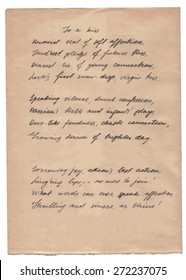 To a kiss
Humid seal of soft affections,
Tend'rest pledge of future bliss,
Dearest tie of young connections,
Love's first snow-drop, virgin kiss.
Speaking silence, dumb confession,
Passion's birth and infants' play,
Dove-like fondness, chaste concession,
Glowing dawn of brighter day.
Sorrowing joy, adieu's last action,
Lingring lips, -- no more to join!
What words can ever speak affection
Thrilling and sincere as thine!
shutterstock.com · 272237075